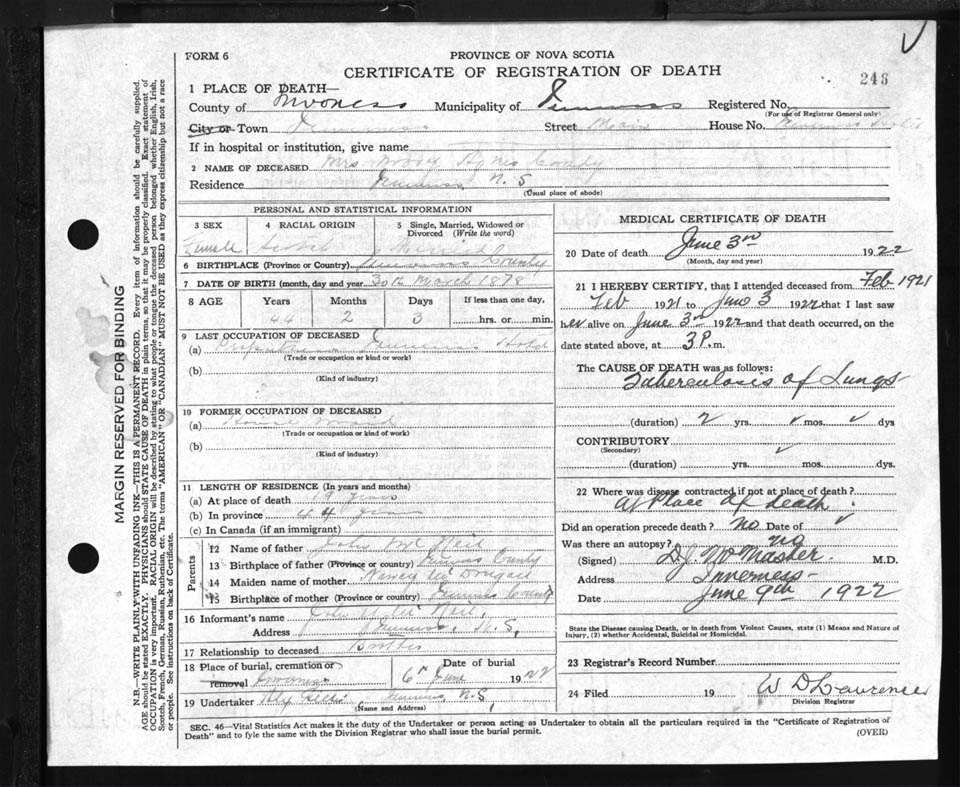 FORM 6
PROVINCE OF NOVA SCOTIA
CERTIFICATE OF REGISTRATION OF DEATH
246
1 PLACE OF DEATH—
County of Inverness Municipality of Inverness Registered No.
(For use of Registrar General only)
City or Town Inverness Street Main House No. Hotel
If in hospital or institution, give name
2 NAME OF DECEASED Mrs Agnes
Residence Inverness N.S.
(Usual place of abode)
PERSONAL AND STATISTICAL INFORMATION
3 SEX 4 RACIAL ORIGIN 5 Single, Married, Widowed or Divorced (Write the word)
Female Scotch Married
6 BIRTHPLACE (Province or Country) Inverness County
7 DATE OF BIRTH (month, day and year) 30th March 1878
8 AGE Years Months Days If less than one day,
44 2 3 hrs. or min.
9 LAST OCCUPATION OF DECEASED
(a) Inverness Hotel
(Trade or occupation or kind or work)
(b)
(Kind of industry)
10 FORMER OCCUPATION OF DECEASED
(a) House Maid
(Trade or occupation or kind of work)
(b)
(Kind of industry)
11 LENGTH OF RESIDENCE (In years and months)
(a) At place of death 19 years
(b) In province 44 years
(c) In Canada (if an immigrant)
Parents
12 Name of father John McNeil
13 Birthplace of father (Province or country) Inverness County
14 Maiden name of mother Nancy McDougall
15 Birthplace of mother (Province or country) Inverness County
16 Informant's name John Neil
Address Inverness, N.S,
17 Relationship to deceased Brother
18 Place of burial, cremation or removal Inverness Date of burial 6th June 1922
19 Undertaker Inverness, N.S,
(Name and Address)
MEDICAL CERTIFICATE OF DEATH
20 Date of death June 3rd 1922
(Month, day and year)
21 I HEREBY CERTIFY, that I attended deceased from Feb 1921
Feb 1921 to June 3 1922 that I last saw
her alive on June 3rd 1922 and that death occurred, on the
date stated above, at 3 P. m.
The CAUSE OF DEATH was as follows:
Tuberculosis of Lungs
(duration) 2 yrs. mos. dys
CONTRIBUTORY
(Secondary)
(duration) yrs. mos. dys.
22 Where was disease contracted if not at place of death?
At Place of death
Did an operation precede death? No Date of
Was there an autopsy? no
(Signed) D.J. McMaster. M.D.
Address Inverness
Date June 9th 1922
State the Disease causing Death, or in death from Violent Causes, state (1) Means and Nature of
Injury, (2) whether Accidental, Suicidal or Homicidal.
23 Registrar's Record Number
24 Filed 19 W D Lawrence
Division Registrar
SEC. 46—Vital Statistics Act makes it the duty of the Undertaker or person acting as Undertaker to obtain all the particulars required in the "Certificate of Registration of
Death" and to fyle the same with the Division Registrar who shall issue the burial permit.
(OVER)
MARGIN RESERVED FOR BINDING
N.B.—WRITE PLAINLY WITH UNFADING INK—THIS IS A PERMANENT RECORD. Every item of information should be carefully supplied.
AGE should be stated EXACTLY. PHYSICIANS should STATE CAUSE OF DEATH in plain terms, so that it may be properly classified. Exact statement of
OCCUPATION is very important. RACIAL ORIGIN will be described by stating to what people or tongue the deceased person belonged whether English, Irish,
Scotch, French, German, Russian, Ruthenian, etc. The terms "AMERICAN" OR "CANADIAN" MUST NOT BE USED as they express citizenship but not a race
or people. See instructions on back of Certificate.